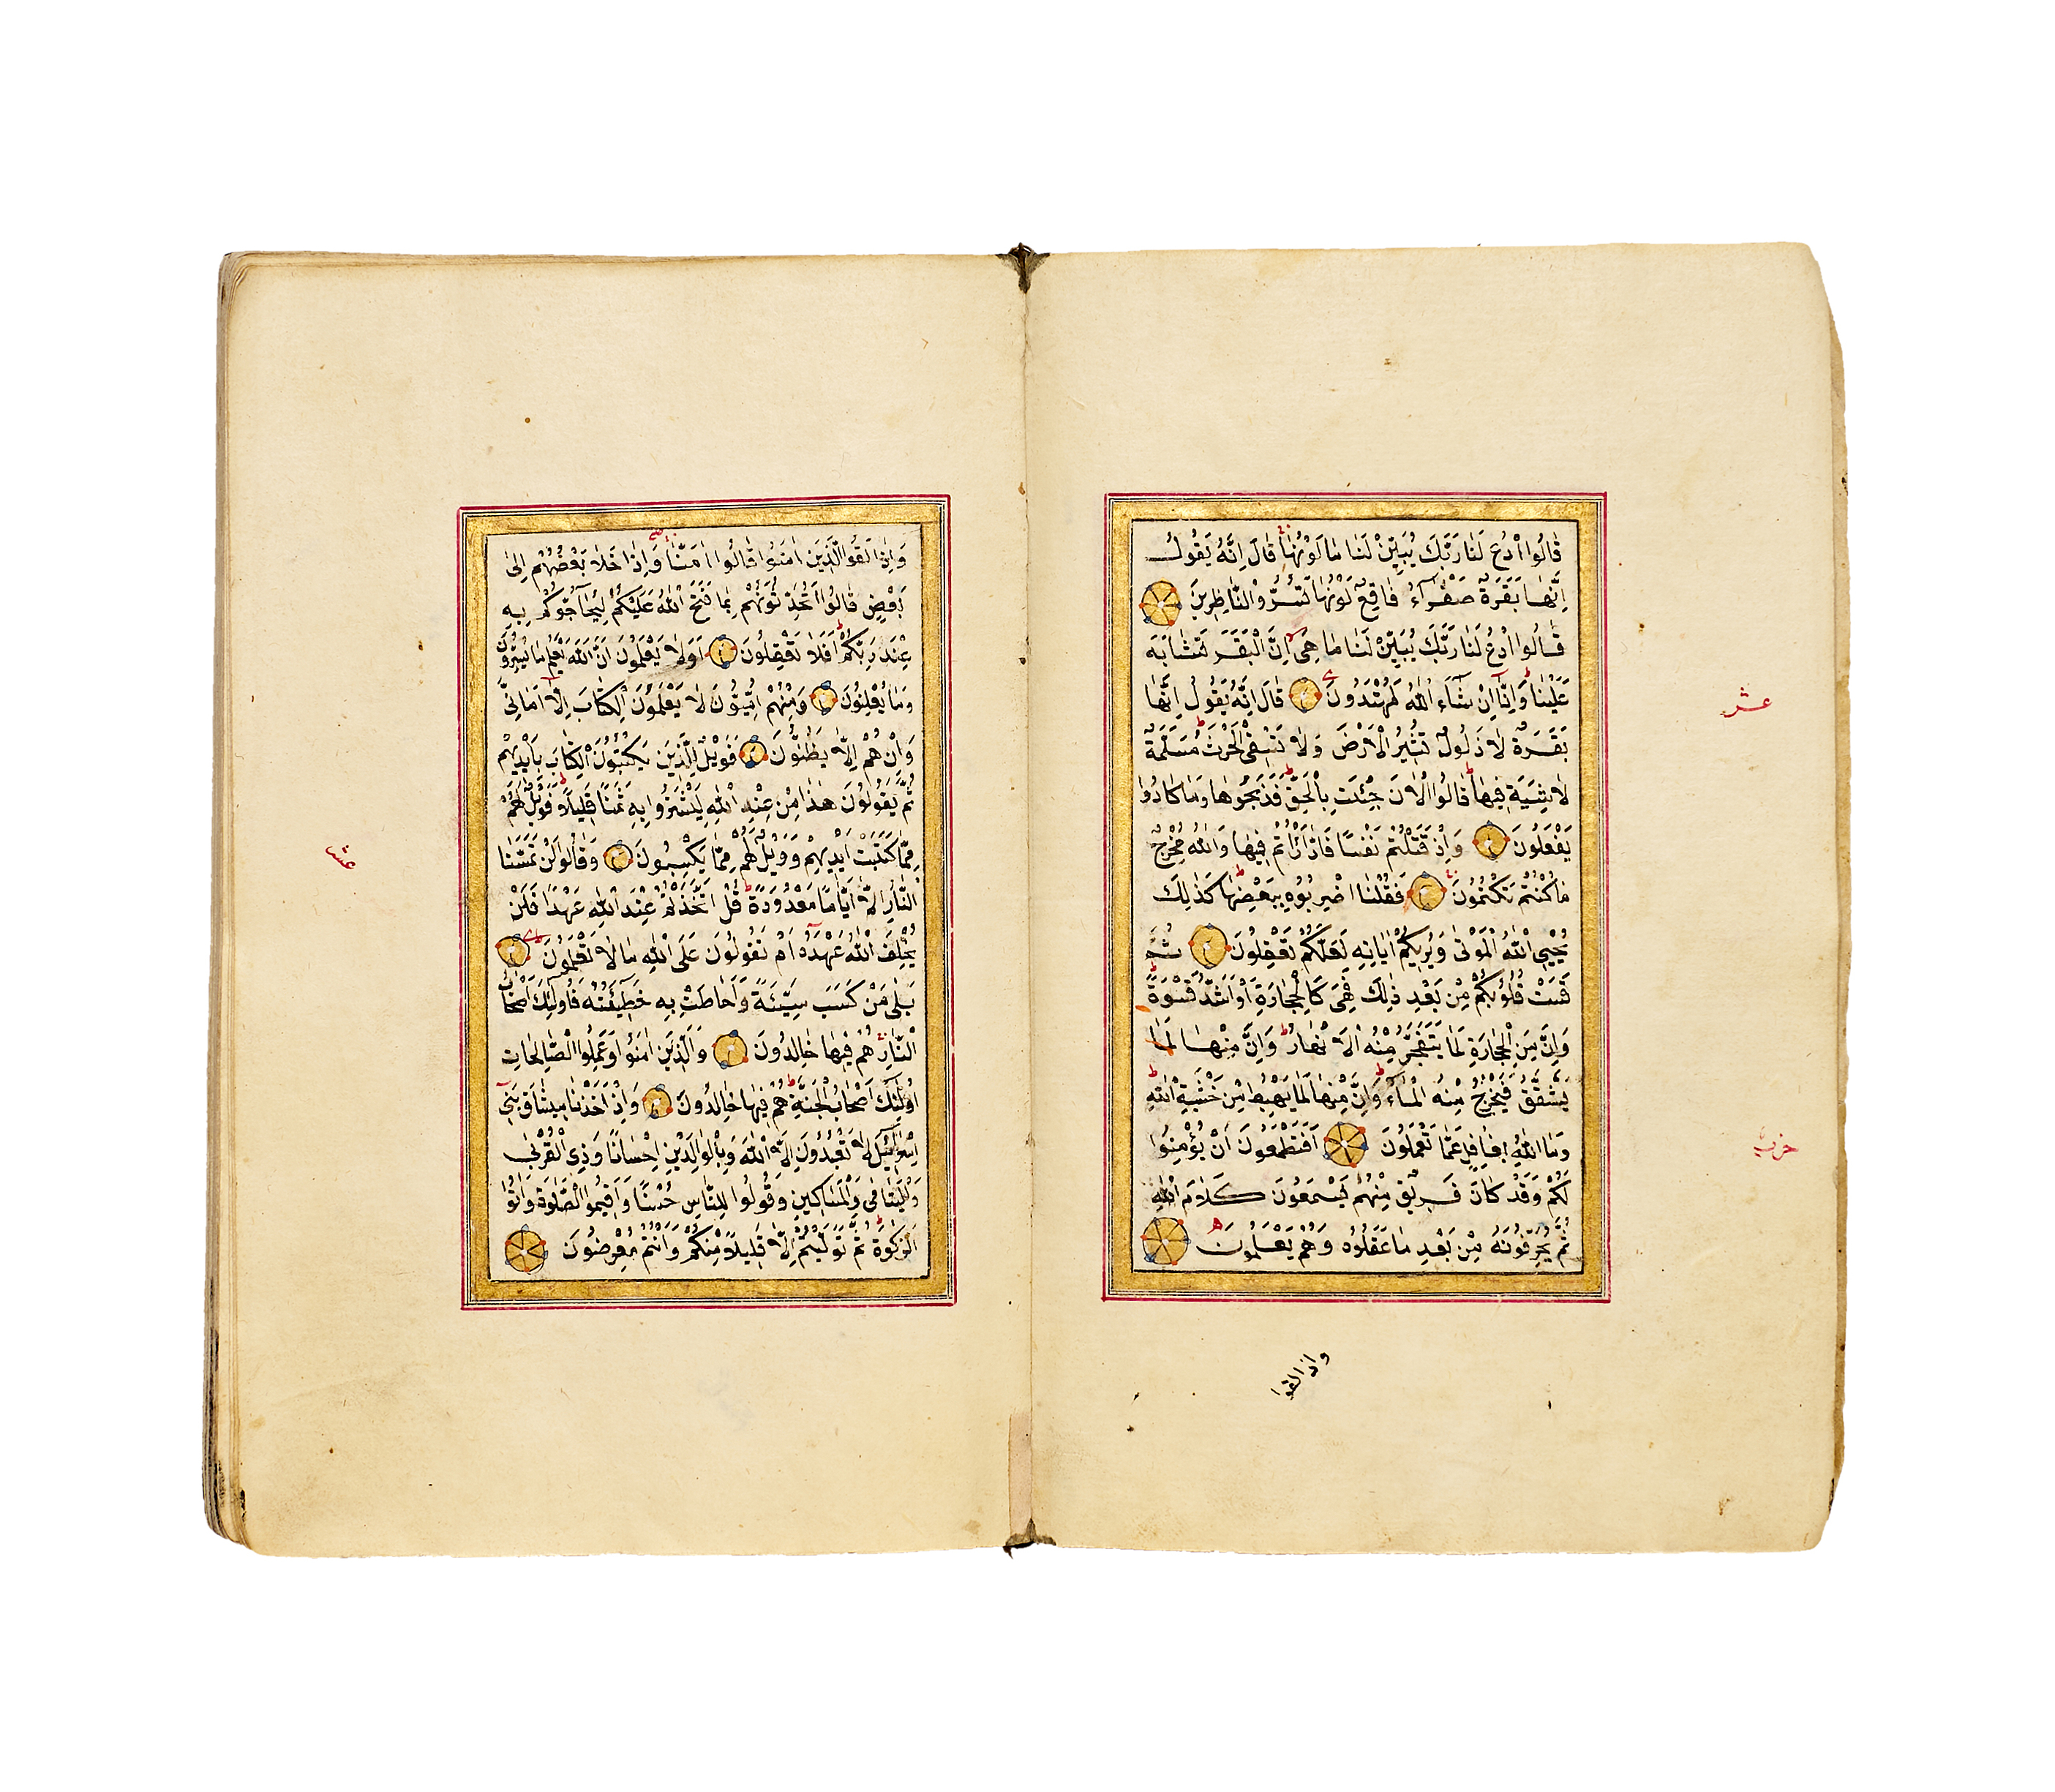 قَالُوا ادْعُ لَنَا رَبَّكَ يُبَيِّنْ لَنَا مَا لَوْنُهَا قَالَ اِنَّهُ يَقُولُ
اِنَّهَا بَقَرَةٌ صَفْرَآءُ فَاقِعٌ لَوْنُهَا تَسُرُّ النَّاظِرِينَ
قَالُوا ادْعُ لَنَا رَبَّكَ يُبَيِّنْ لَنَا مَا هِىَ اِنَّ الْبَقَرَ تَشَابَهَ
عَلَيْنَا وَاِنَّا اِنْ شَآءَ اللّٰهُ لَمُهْتَدُونَ قَالَ اِنَّهُ يَقُولُ اِنَّهَا
بَقَرَةٌ لَا ذَلُولٌ تُثِيرُ الْاَرْضَ وَلَا تَسْقِى الْحَرْثَ مُسَلَّمَةٌ
لَاشِيَةَ فِيهَا قَالُوا الْاٰنَ جِئْتَ بِالْحَقِّ فَذَبَحُوهَا وَمَا كَادُوا
يَفْعَلُونَ وَاِذْ قَتَلْتُمْ نَفْسًا فَادَّارَأْتُمْ فِيهَا وَاللّٰهُ مُخْرِجٌ
مَا كُنْتُمْ تَكْتُمُونَ فَقُلْنَا اضْرِبُوهُ بِبَعْضِهَا كَذٰلِكَ
يُحْيِي اللّٰهُ الْمَوْتٰى وَيُرِيكُمْ اٰيَاتِهِ لَعَلَّكُمْ تَعْقِلُونَ ثُمَّ
قَسَتْ قُلُوبُكُمْ مِنْ بَعْدِ ذٰلِكَ فَهِىَ كَالْحِجَارَةِ اَوْ اَشَدُّ قَسْوَةً
وَاِنَّ مِنَ الْحِجَارَةِ لَمَا يَتَفَجَّرُ مِنْهُ الْاَنْهَارُ وَاِنَّ مِنْهَا لَمَا
يَشَّقَّقُ فَيَخْرُجُ مِنْهُ الْمَآءُ وَاِنَّ مِنْهَا لَمَا يَهْبِطُ مِنْ خَشْيَةِ اللّٰهِ
وَمَا اللّٰهُ بِغَافِلٍ عَمَّا تَعْمَلُونَ اَفَتَطْمَعُونَ اَنْ يُؤْمِنُوا
لَكُمْ وَقَدْ كَانَ فَرِيقٌ مِنْهُمْ يَسْمَعُونَ كَلَامَ اللّٰهِ
ثُمَّ يُحَرِّفُونَهُ مِنْ بَعْدِ مَا عَقَلُوهُ وَهُمْ يَعْلَمُونَ
واذا لقوا
عشر
حزب
وَاِذَا لَقُوا الَّذِينَ اٰمَنُوا قَالُوا اٰمَنَّا وَاِذَا خَلَا بَعْضُهُمْ اِلٰى
بَعْضٍ قَالُوا اَتُحَدِّثُونَهُمْ بِمَا فَتَحَ اللّٰهُ عَلَيْكُمْ لِيُحَآجُّوكُمْ بِهِ
عِنْدَ رَبِّكُمْ اَفَلَا تَعْقِلُونَ اَوَلَا يَعْلَمُونَ اَنَّ اللّٰهَ يَعْلَمُ مَا يُسِرُّونَ
وَمَا يُعْلِنُونَ وَمِنْهُمْ اُمِّيُّونَ لَا يَعْلَمُونَ الْكِتَابَ اِلَّا اَمَانِىَّ
وَاِنْ هُمْ اِلَّا يَظُنُّونَ فَوَيْلٌ لِلَّذِينَ يَكْتُبُونَ الْكِتَابَ بِاَيْدِيهِمْ
ثُمَّ يَقُولُونَ هٰذَا مِنْ عِنْدِ اللّٰهِ لِيَشْتَرُوا بِهِ ثَمَنًا قَلِيلًا فَوَيْلٌ لَهُمْ
مِمَّا كَتَبَتْ اَيْدِيهِمْ وَوَيْلٌ لَهُمْ مِمَّا يَكْسِبُونَ وَقَالُوا لَنْ تَمَسَّنَا
النَّارُ اِلَّا اَيَّامًا مَعْدُودَةً قُلْ اَتَّخَذْتُمْ عِنْدَ اللّٰهِ عَهْدًا فَلَنْ
يُخْلِفَ اللّٰهُ عَهْدَهُ اَمْ تَقُولُونَ عَلَى اللّٰهِ مَا لَا تَعْلَمُونَ
بَلٰى مَنْ كَسَبَ سَيِّئَةً وَاَحَاطَتْ بِهِ خَطِيٓئَتُهُ فَاُولٰٓئِكَ اَصْحَابُ
النَّارِ هُمْ فِيهَا خَالِدُونَ وَالَّذِينَ اٰمَنُوا وَعَمِلُوا الصَّالِحَاتِ
اُولٰٓئِكَ اَصْحَابُ الْجَنَّةِ هُمْ فِيهَا خَالِدُونَ وَاِذْ اَخَذْنَا مِيثَاقَ بَنِىٓ
اِسْرَآئِيلَ لَا تَعْبُدُونَ اِلَّا اللّٰهَ وَبِالْوَالِدَيْنِ اِحْسَانًا وَذِى الْقُرْبٰى
وَالْيَتَامٰى وَالْمَسَاكِينِ وَقُولُوا لِلنَّاسِ حُسْنًا وَاَقِيمُوا الصَّلٰوةَ وَاٰتُوا
الزَّكٰوةَ ثُمَّ تَوَلَّيْتُمْ اِلَّا قَلِيلًا مِنْكُمْ وَاَنْتُمْ مُعْرِضُونَ
عشر